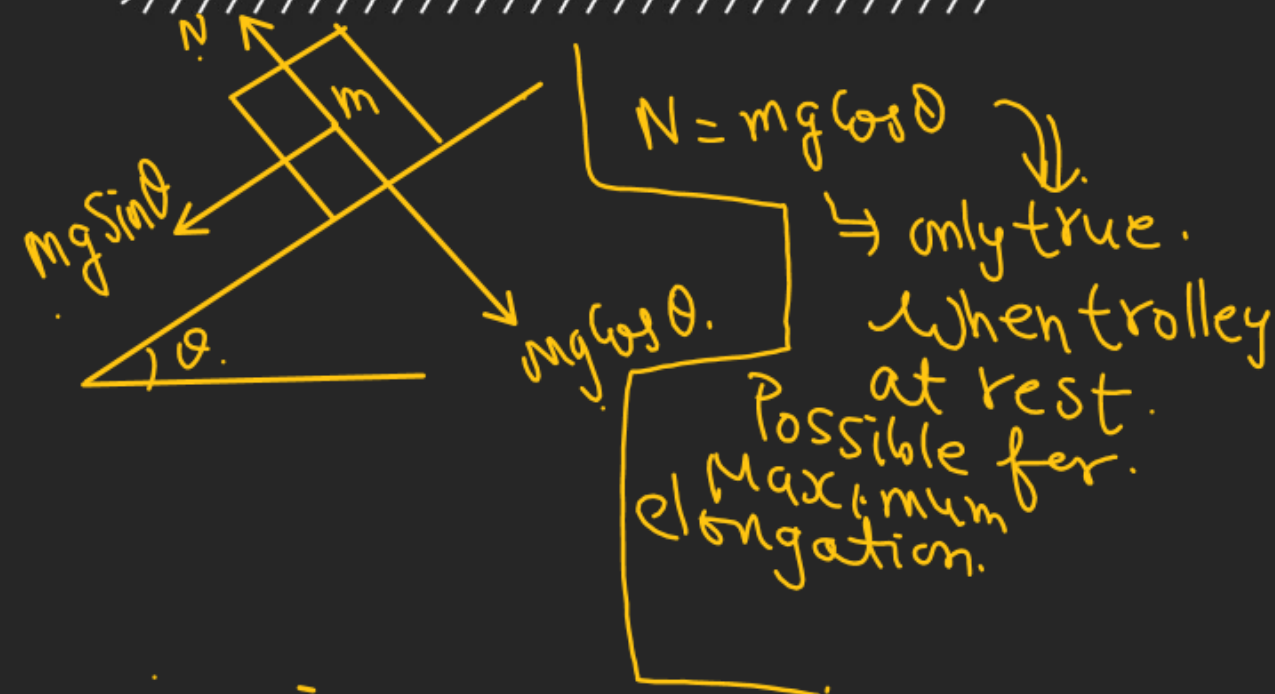 N
m
mg Sinθ
θ.
mg Cosθ.
N = mg Cosθ
⇒ only true.
when trolley
at rest.
Possible for.
Maximum
elongation.